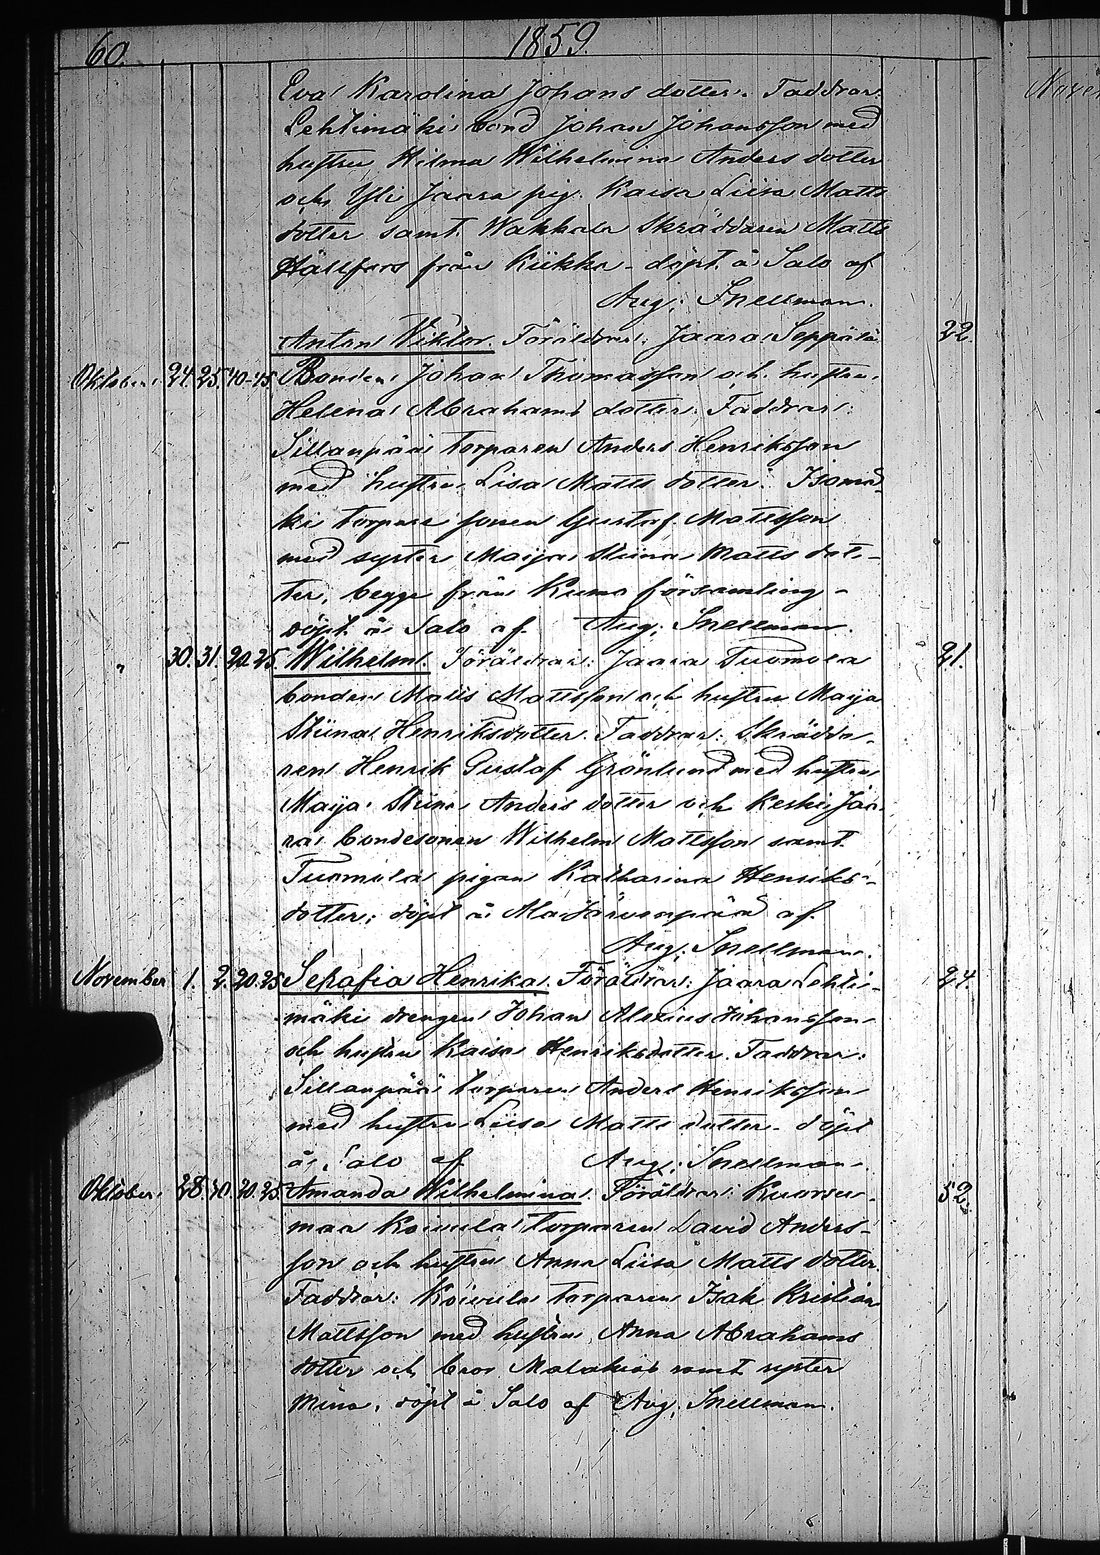 60. 1859.
Eva Karolina Johans dotter. Faddrar:
Lehtimäki bond Johan Johansson med
hustru Hilma Wilhelmina Anders dotter
och Yli Jaara pig. Kaisa Liisa Matts
dotter samt Wakkala Skräddaren Matts
Hällfors från Kiikka - döpt å Salo af
Aug: Snellman.
Anton Viktor. Föräldrar: Jaara Seppälä 22.
Oktober 24. 25. 40-45 Bonden Johan Thomasson och hustru
Helena Abrahams dotter. Faddrar:
Sillanpää torparen Anders Henriksson
med hustru Lisa Matts dotter. Isomä-
ki torpare sonen Gustaf Mattsson
med syster Maija Stiina Matts dot-
ter, begge från Kumo församling -
döpt å Salo af Aug: Snellman.
" 30. 31. 20.25. Wilhelm. Föräldrar: Jaara Tuomola 21.
bonden Matts Mattsson och hustru Maija
Stiina Henriksdotter. Faddrar: Skrädda-
ren Henrik Gustaf Grönlund med hustru
Maija Stiina Anders dotter och Keski Jaa-
ra bondesonen Wilhelm Mattsson samt
Tuomola pigan Katharina Henriks-
dotter; döpt å Ala Järvenpää af
Aug: Snellman.
November 1. 2. 20.25 Serafia Henrika. Föräldrar: Jaara Lehti- 24.
mäki drengen Johan Alexius Johansson
och hustru Kaisa Henriksdotter. Faddrar:
Sillanpää torparen Anders Henriksson
med hustru Liisa Matts dotter - döpt
å Salo af Aug: Snellman.
Oktober 28. 30. 20.25. Amanda Wilhelmina. Föräldrar: Kuorsu- 52.
maa Koivula Torparen David Anders-
son och hustru Anna Liisa Matts dotter.
Faddrar: Koivula torparen Isak Kristian
Mattsson med hustru Anna Abrahams
dotter och bror Malakias samt syster
Mina, döpt å Salo af Aug: Snellman.